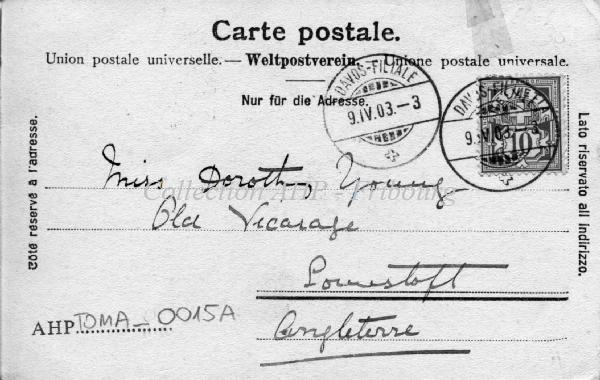 Carte postale.
Union postale universelle. — Weltpostverein. — Unione postale universale.
Nur für die Adresse.
DAVOS-FILIALE
9.IV.03.–3
DAVOS-FILIALE
9.IV.03.–3
10
Côté réservé à l'adresse.
Lato riservato all indirizzo.
Miss Dorothy Young
Collection AHP - Fribourg
Old Vicarage
Lowestoft
Angleterre
AHP TOMA - 0015A